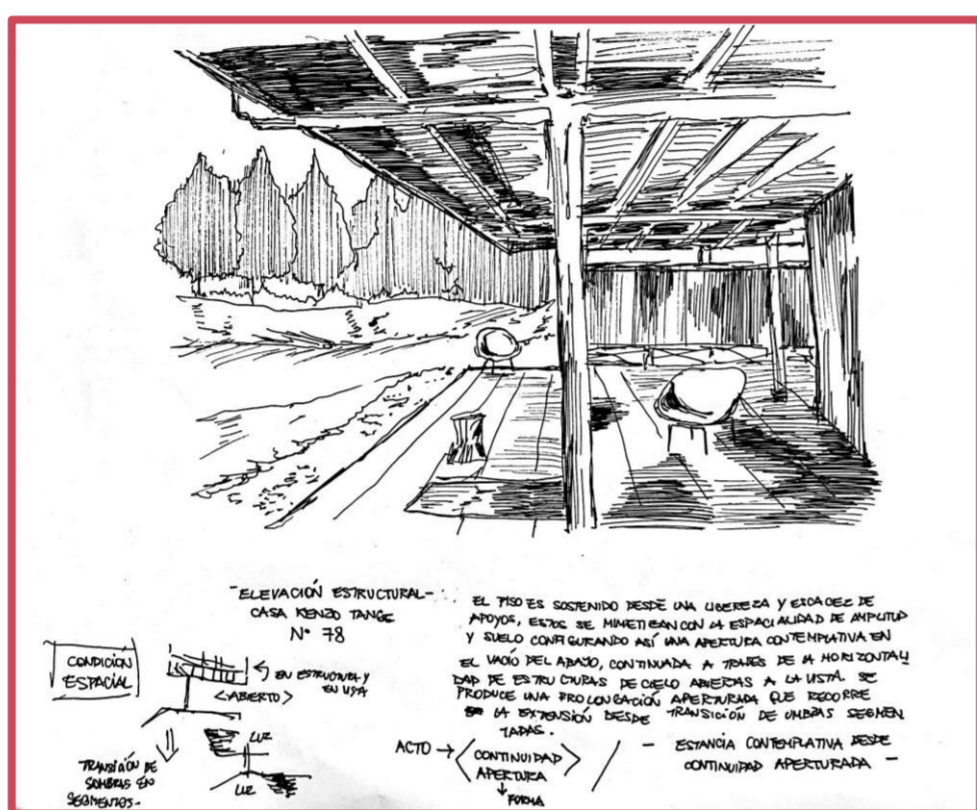 - ELEVACIÓN ESTRUCTURAL -
CASA KENZO TANGE
N° 78
CONDICIÓN
ESPACIAL
EN ESTRUCTURA Y
EN VISTA
<ABIERTO>
LUZ
LUZ
TRANSICIÓN DE
SOMBRAS EN
SEGMENTOS.-
EL PISO ES SOSTENIDO DESDE UNA LIGEREZA Y ESCACEZ DE
APOYOS, ESTOS SE MIMETIZAN CON LA ESPACIALIDAD DE AMPLITUD
Y SUELO CONFIGURANDO ASÍ UNA APERTURA CONTEMPLATIVA EN
EL VACÍO DEL ABAJO, CONTINUADA A TRAVES DE LA HORIZONTALI
DAD DE ESTRUCTURAS DE CIELO ABIERTAS A LA VISTA. SE
PRODUCE UNA PROLONGACIÓN APERTURADA QUE RECORRE
LA EXTENSIÓN DESDE TRANSICIÓN DE UMBRAS SEGMEN
TADAS.
ACTO → <CONTINUIDAD
APERTURA>
↓
FORMA
/ - ESTANCIA CONTEMPLATIVA DESDE
CONTINUIDAD APERTURADA -